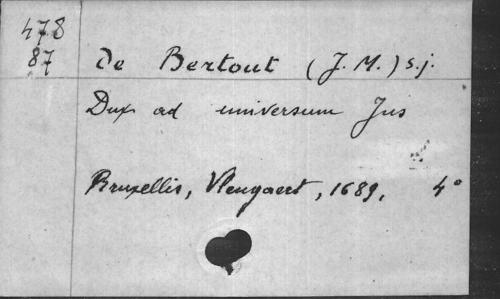 478
87
De Bertout (J. M.) s.j.
Dux ad universum Jus
Bruxellis, Vleugaert, 1689, 4°